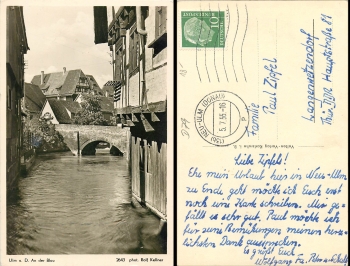 Ulm a. D. An der Blau
2643 phot. Rolf Kellner
DEUTSCHE BUNDESPOST
10
(13b) NEU-ULM (DONAU)
5.7.55-16
Familie
Paul Zipfel
Langenwetzendorf
Thür/DDR Hauptstraße 81
Liebe Zipfels!
Ehe mein Urlaub hier in Neu-Ulm
zu Ende geht möchte ich Euch erst
noch eine Karte schreiben. Mir ge-
fällt es sehr gut. Paul möchte ich
für seine Bemühungen meinen herz-
lichsten Dank aussprechen.
Es grüßt Euch
Wolfgang